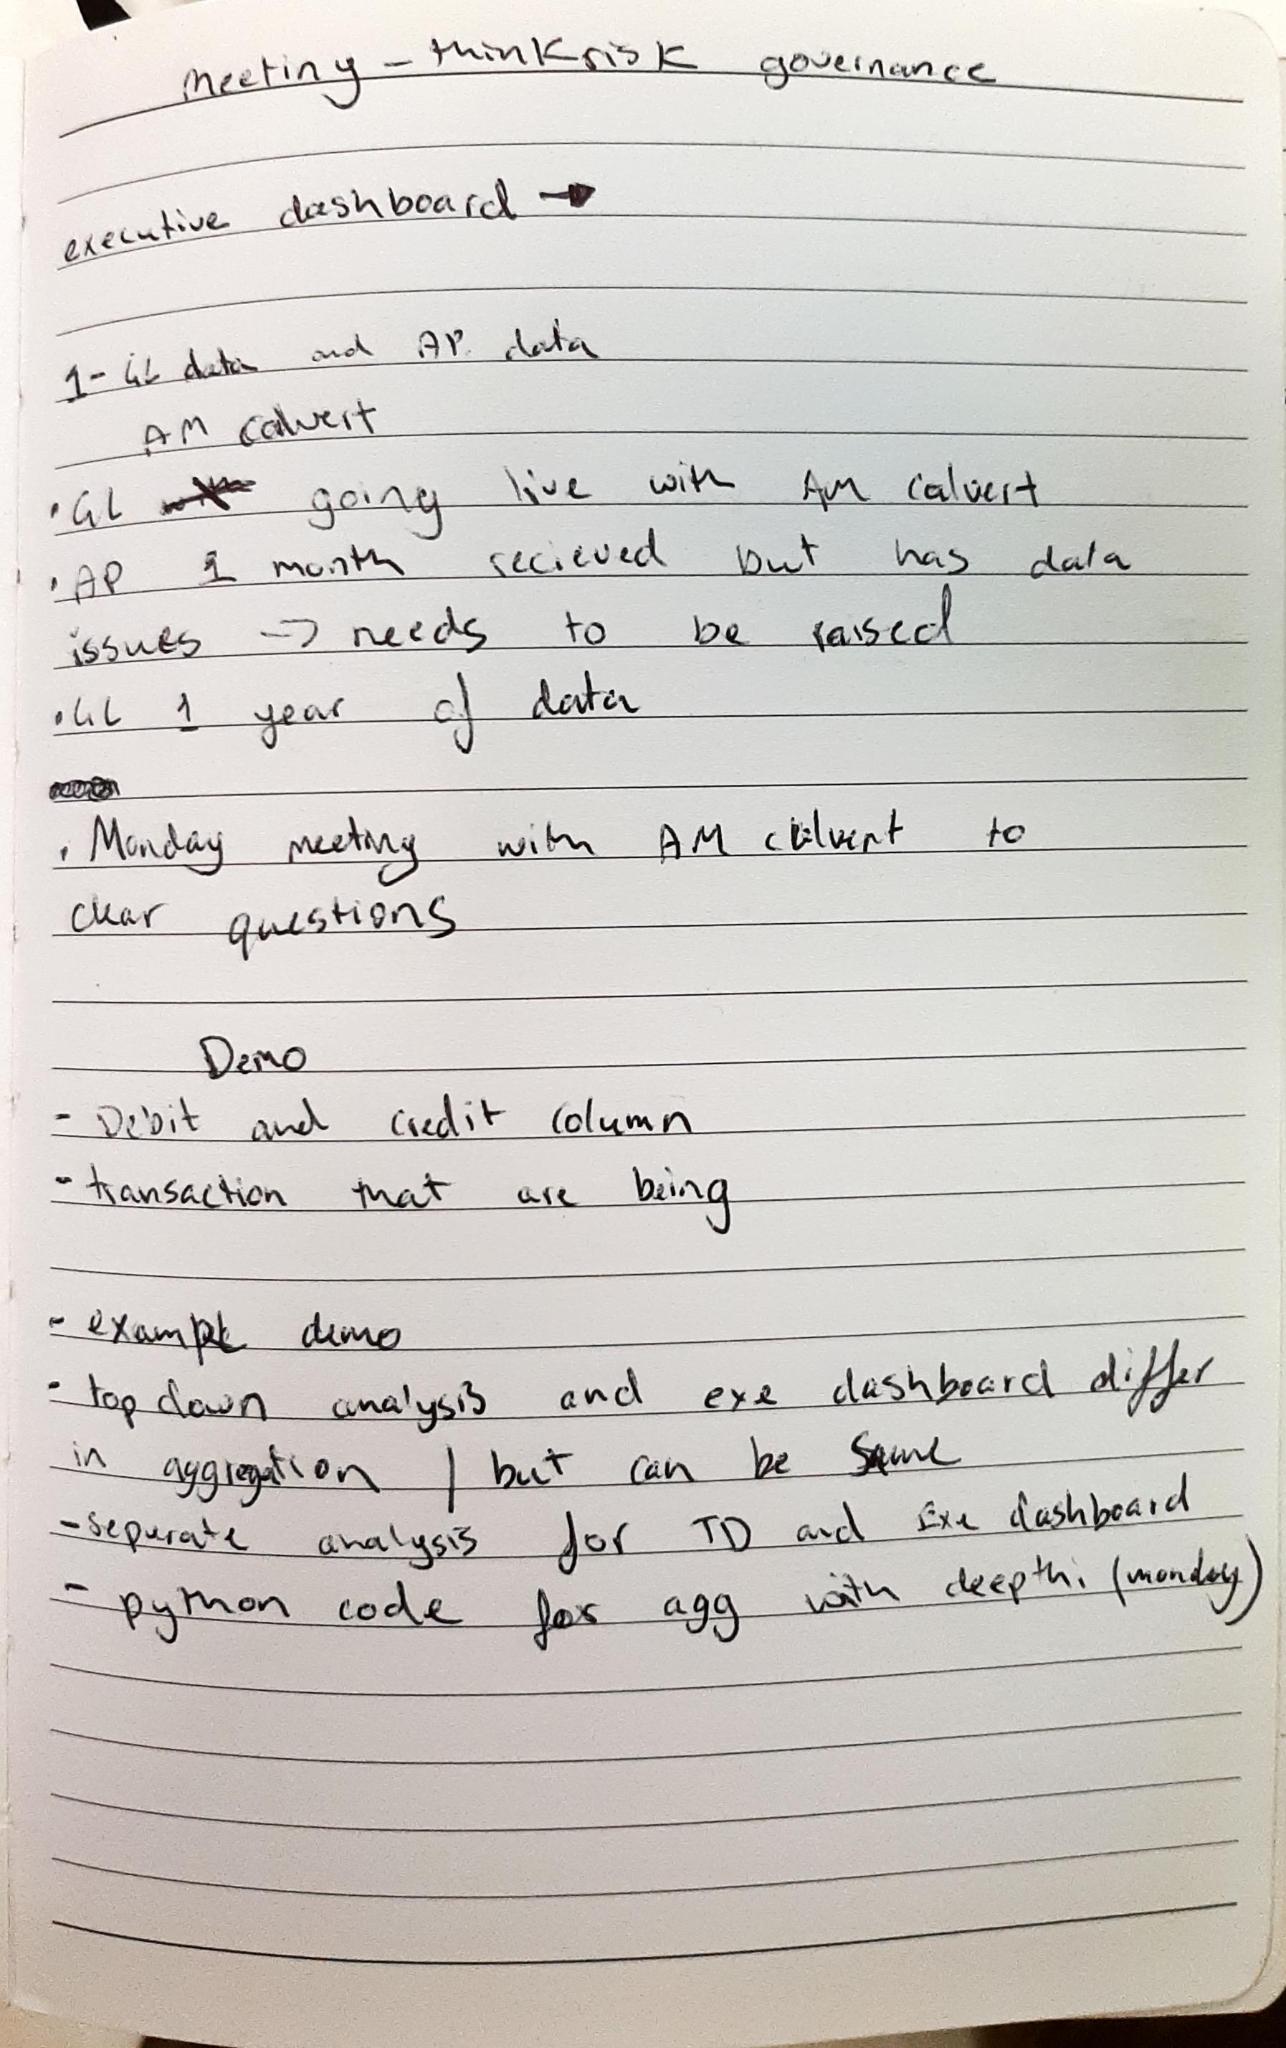 meeting - thinkrisk governance
executive dashboard →
1- GL data and AP. data
AM calvert
• GL going live with AM calvert
• AP 1 month recieved but has data
issues -> needs to be raised
• GL 1 year of data
• Monday meeting with AM calvert to
clear questions
Demo
- Debit and credit column
- transaction that are being
- example demo
- top down analysis and exe dashboard differ
in aggregation / but can be same
- seperate analysis for TD and Exe dashboard
- python code for agg with deepthi (monday)